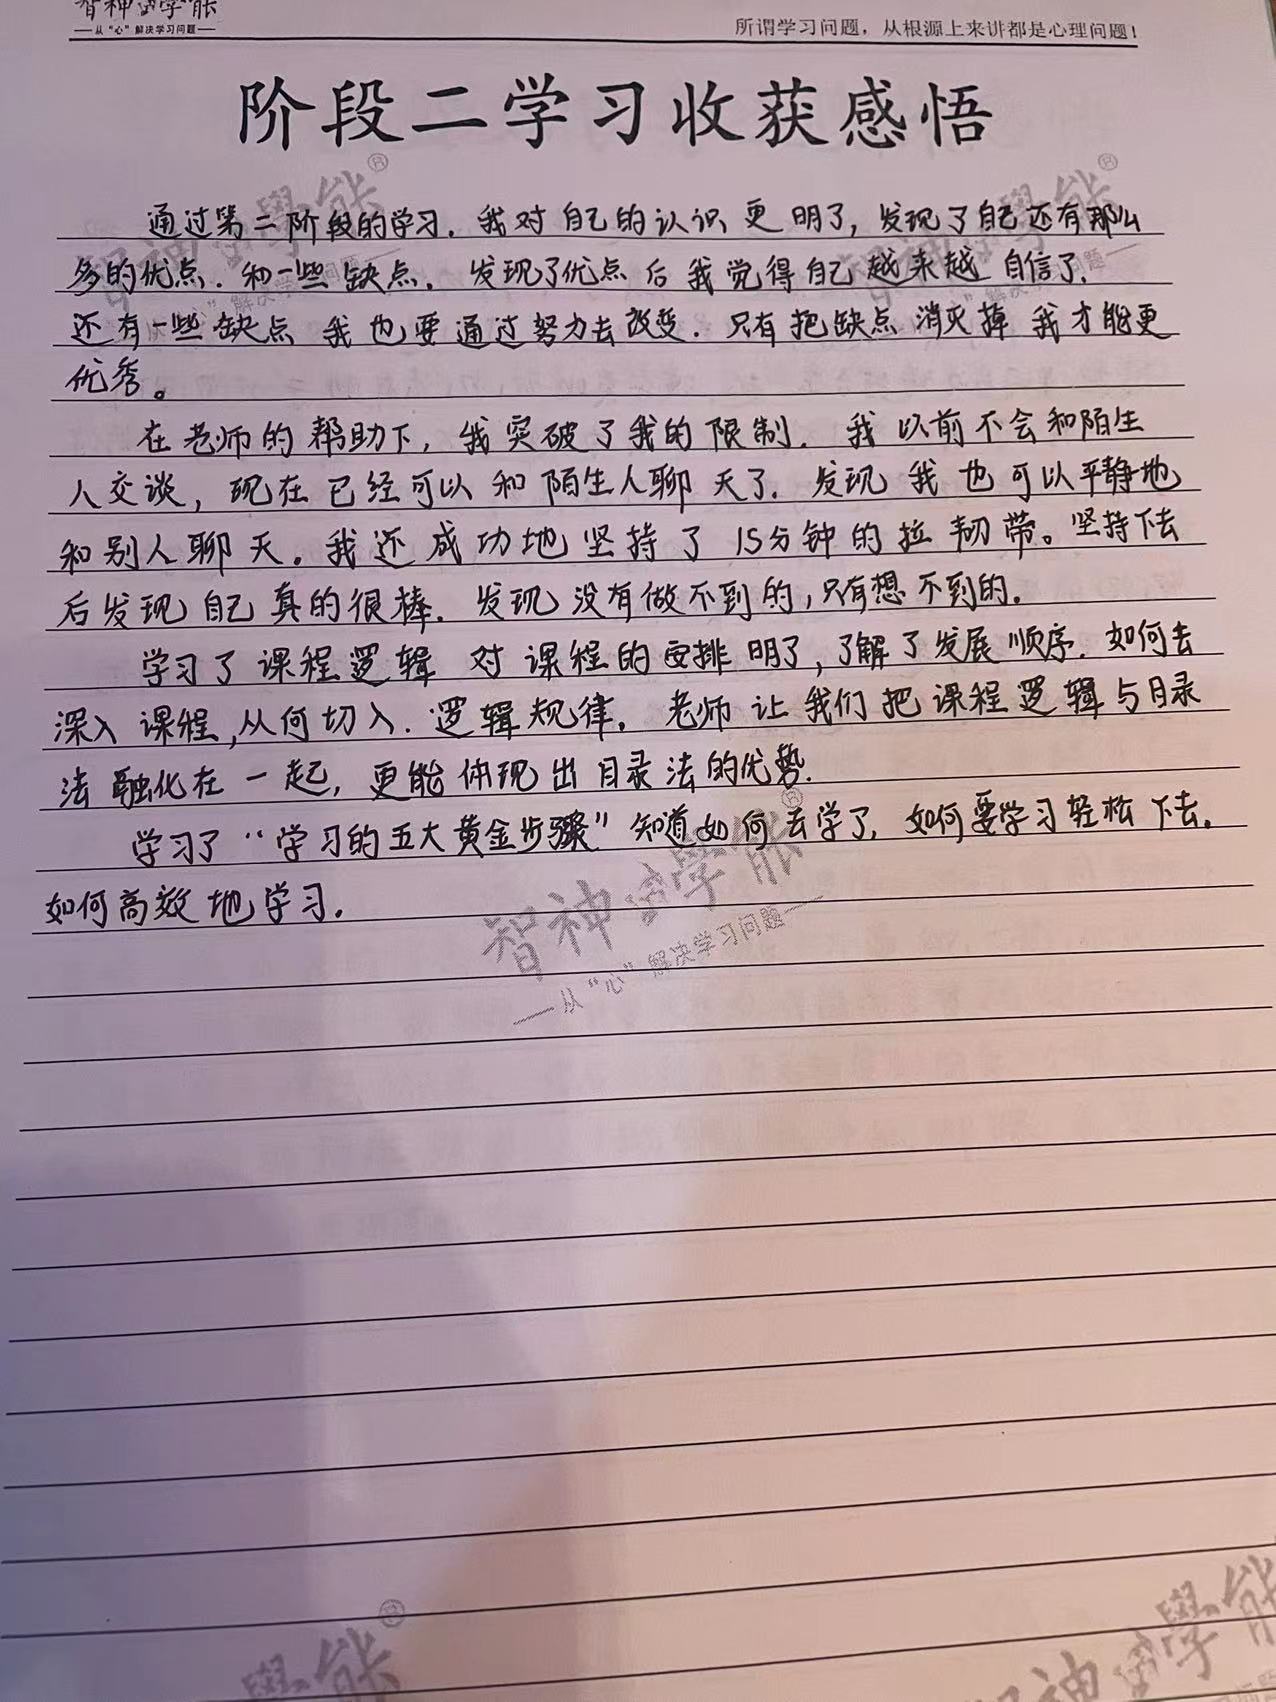 智神学能
从“心”解决学习问题
所谓学习问题，从根源上来讲都是心理问题！
阶段二学习收获感悟
通过第二阶段的学习．我对自己的认识更明了，发现了自己还有那么
多的优点．和一些缺点．发现了优点后我觉得自己越来越自信了．
还有一些缺点我也要通过努力去改变．只有把缺点消灭掉我才能更
优秀。
在老师的帮助下，我突破了我的限制．我以前不会和陌生
人交谈，现在已经可以和陌生人聊天了．发现我也可以平静地
和别人聊天。我还成功地坚持了15分钟的拉韧带。坚持下去
后发现自己真的很棒．发现没有做不到的，只有想不到的．
学习了课程逻辑对课程的安排明了，了解了发展顺序．如何去
深入课程，从何切入．逻辑规律．老师让我们把课程逻辑与目录
法融化在一起，更能体现出目录法的优势．
学习了“学习的五大黄金步骤”知道如何去学了．如何要学习轻松下去．
如何高效地学习．
智神學能
从“心”解决学习问题